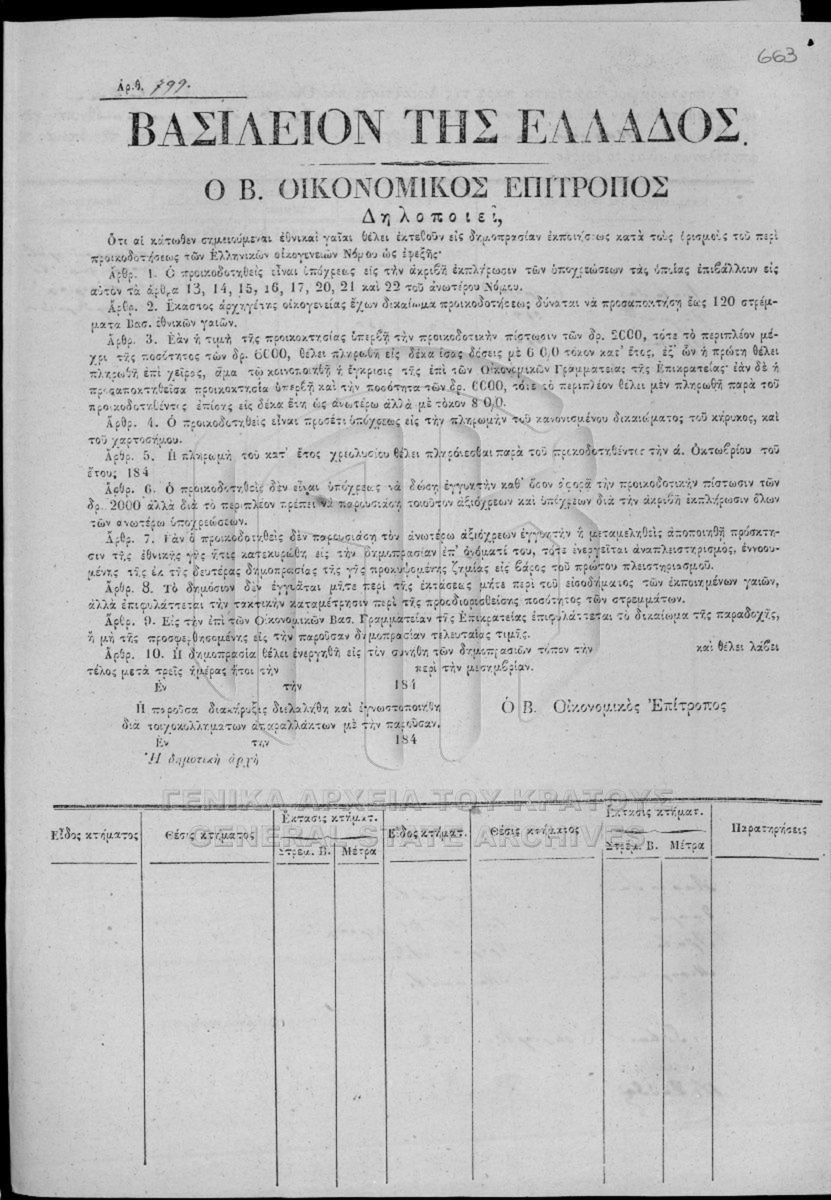 663
Ἀρ.θ. 799.
ΒΑΣΙΛΕΙΟΝ ΤΗΣ ΕΛΛΑΔΟΣ.
Ο Β. ΟΙΚΟΝΟΜΙΚΟΣ ΕΠΙΤΡΟΠΟΣ
Δηλοποιεῖ,
Ὅτι αἱ κάτωθεν σημειούμεναι ἐθνικαὶ γαῖαι θέλει ἐκτεθοῦν εἰς δημοπρασίαν ἐκποιήσεως κατὰ τοὺς ὁρισμοὺς τοῦ περὶ
προικοδοτήσεως τῶν Ἑλληνικῶν οἰκογενειῶν Νόμου ὡς ἐφεξῆς·
Ἄρθρ. 1. Ὁ προικοδοτηθεὶς εἶναι ὑπόχρεως εἰς τὴν ἀκριβῆ ἐκπλήρωσιν τῶν ὑποχρεώσεων τὰς ὁποίας ἐπιβάλλουν εἰς
αὐτὸν τὰ ἄρθρα 13, 14, 15, 16, 17, 20, 21 καὶ 22 τοῦ ἀνωτέρω Νόμου.
Ἄρθρ. 2. Ἕκαστος ἀρχηγέτης οἰκογενείας ἔχων δικαίωμα προικοδοτήσεως δύναται νὰ προσαποκτήσῃ ἕως 120 στρέμ-
ματα Βασ. ἐθνικῶν γαιῶν.
Ἄρθρ. 3. Ἐὰν ἡ τιμὴ τῆς προικοκτησίας ὑπερβῇ τὴν προικοδοτικὴν πίστωσιν τῶν δρ. 2000, τότε τὸ περιπλέον μέ-
χρι τῆς ποσότητος τῶν δρ. 6000, θέλει πληρωθῆ εἰς δέκα ἴσας δόσεις μὲ 6 0,0 τόκον κατ' ἔτος, ἐξ' ὧν ἡ πρώτη θέλει
πληρωθῆ ἐπὶ χεῖρος, ἅμα τῷ κοινοποιηθῇ ἡ ἔγκρισις τῆς ἐπὶ τῶν Οἰκονομικῶν Γραμματείας τῆς Ἐπικρατείας· ἐὰν δὲ ἡ
προσαποκτηθεῖσα προικοκτησία ὑπερβῇ καὶ τὴν ποσότητα τῶν δρ. 6000, τότε τὸ περιπλέον θέλει μὲν πληρωθῆ παρὰ τοῦ
προικοδοτηθέντος ἐπίσης εἰς δέκα ἔτη ὡς ἀνωτέρω ἀλλὰ μὲ τόκον 8 0,0.
Ἄρθρ. 4. Ὁ προικοδοτηθεὶς εἶναι προσέτι ὑπόχρεως εἰς τὴν πληρωμὴν τοῦ κανονισμένου δικαιώματος τοῦ κήρυκος, καὶ
τοῦ χαρτοσήμου.
Ἄρθρ. 5. Ἡ πληρωμὴ τοῦ κατ' ἔτος χρεολυσίου θέλει πληρόνεσθαι παρὰ τοῦ προικοδοτηθέντος τὴν ά. Ὀκτωβρίου τοῦ
ἔτους 184
Ἄρθρ. 6. Ὁ προικοδοτηθεὶς δὲν εἶναι ὑπόχρεως νὰ δώσῃ ἐγγυητὴν καθ' ὅσον ἀφορᾷ τὴν προικοδοτικὴν πίστωσιν τῶν
δρ. 2000 ἀλλὰ διὰ τὸ περιπλέον πρέπει νὰ παρουσιάσῃ τοιοῦτον ἀξιόχρεων καὶ ὑπόχρεων διὰ τὴν ἀκριβῆ ἐκπλήρωσιν ὅλων
τῶν ἀνωτέρω ὑποχρεώσεων.
Ἄρθρ. 7. Ἐὰν ὁ προικοδοτηθεὶς δὲν παρουσιάσῃ τὸν ἀνωτέρω ἀξιόχρεων ἐγγυητὴν ἢ μεταμεληθεὶς ἀποποιηθῇ πρόσκτη-
σιν τῆς ἐθνικῆς γῆς ἥτις κατεκυρώθη εἰς τὴν δημοπρασίαν ἐπ' ὀνόματί του, τότε ἐνεργεῖται ἀναπλειστηρισμὸς, ἐννοου-
μένης τῆς ἐκ τῆς δευτέρας δημοπρασίας τῆς γῆς προκυψομένης ζημίας εἰς βάρος τοῦ πρώτου πλειστηριασμοῦ.
Ἄρθρ. 8. Τὸ δημόσιον δὲν ἐγγυᾶται μήτε περὶ τῆς ἐκτάσεως μήτε περὶ τοῦ εἰσοδήματος τῶν ἐκποιημένων γαιῶν,
ἀλλὰ ἐπιφυλάττεται τὴν τακτικὴν καταμέτρησιν περὶ τῆς προσδιορισθείσης ποσότητος τῶν στρεμμάτων.
Ἄρθρ. 9. Εἰς τὴν ἐπὶ τῶν Οἰκονομικῶν Βασ. Γραμματείαν τῆς Ἐπικρατείας ἐπιφυλάττεται τὸ δικαίωμα τῆς παραδοχῆς,
ἢ μὴ τῆς προσφερθησομένης εἰς τὴν παροῦσαν δημοπρασίαν τελευταίας τιμῆς.
Ἄρθρ. 10. Ἡ δημοπρασία θέλει ἐνεργηθῆ εἰς τὸν συνήθη τῶν δημοπρασιῶν τόπον τὴν καὶ θέλει λάβει
τέλος μετὰ τρεῖς ἡμέρας ἤτοι τὴν περὶ τὴν μεσημβρίαν.
Ἐν τὴν 184
Ἡ παροῦσα διακήρυξις διελαλήθη καὶ ἐγνωστοποιήθη
διὰ τοιχοκολλημάτων ἀπαραλλάκτων μὲ τὴν παροῦσαν.
Ἐν τὴν 184
Ἡ δημοτικὴ ἀρχὴ
Ὁ Β. Οἰκονομικὸς Ἐπίτροπος
ΓΕΝΙΚΑ ΑΡΧΕΙΑ ΤΟΥ ΚΡΑΤΟΥΣ
GENERAL STATE ARCHIVES
Εἶδος κτήματος Θέσις κτήματος Ἔκτασις κτήματ. Εἶδος κτήματ. Θέσις κτήματος Ἔκτασις κτήματ. Παρατηρήσεις
Στρέμ. Β. Μέτρα Στρέμ. Β. Μέτρα